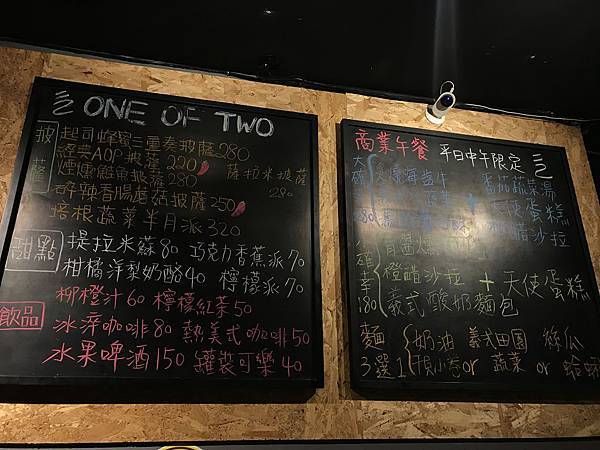 ONE OF TWO
披薩
起司蜂蜜三重奏披薩280
經典AOP披薩220
薩拉米披薩280
煙燻鮭魚披薩280
酥辣香腸蘑菇披薩250
培根蔬菜半月派320
甜點
提拉米蘇80 巧克力香蕉派70
柑橘洋梨奶酪40 檸檬派70
飲品
柳橙汁60 檸檬紅茶50
冰淬咖啡80 熱美式咖啡50
水果啤酒150 罐裝可樂40
商業午餐 平日中午限定
番茄蔬菜湯
天使蛋糕
橙醋沙拉
180
橙醋沙拉
義式酸奶麵包
+天使蛋糕
麵3選1
奶油 義式田園 絲瓜
or 蔬菜 or 蛤蜊